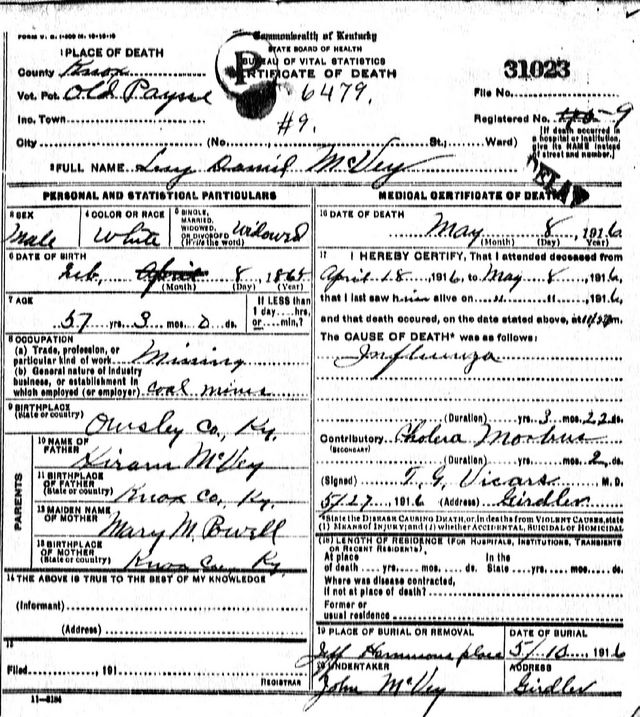 FORM V. S. 1-
Commonwealth of Kentucky
STATE BOARD OF HEALTH
BUREAU OF VITAL STATISTICS
CERTIFICATE OF DEATH
P
1 PLACE OF DEATH
County Knox
Vot. Pct. Old Payne
Inc. Town
City (No. St.; Ward)
6479.
#9.
31023
File No.
Registered No. 9
[If death occurred in a hospital or institution, give its NAME instead of street and number.]
2 FULL NAME Daniel McVey
DELAY
PERSONAL AND STATISTICAL PARTICULARS
3 SEX Male
4 COLOR OR RACE White
5 SINGLE, MARRIED, WIDOWED OR DIVORCED (Write the word) Widowed
6 DATE OF BIRTH
Feb. April 8, 186
(Month) (Day) (Year)
7 AGE
57 yrs. 3 mos. 0 ds.
If LESS than 1 day....hrs. or.....min.?
8 OCCUPATION
(a) Trade, profession, or particular kind of work Mining
(b) General nature of industry business, or establishment in which employed (or employer) coal mines
9 BIRTHPLACE (State or country) Owsley Co., Ky.
PARENTS
10 NAME OF FATHER Hiram McVey
11 BIRTHPLACE OF FATHER (State or country) Knox Co, Ky.
12 MAIDEN NAME OF MOTHER Mary M. Powell
13 BIRTHPLACE OF MOTHER (State or country) Knox Co., Ky.
14 THE ABOVE IS TRUE TO THE BEST OF MY KNOWLEDGE
(Informant)
(Address)
15
Filed 191
REGISTRAR
11-
MEDICAL CERTIFICATE OF DEATH
16 DATE OF DEATH
May 8, 1916
(Month) (Day) (Year)
17 I HEREBY CERTIFY, That I attended deceased from
April 18, 1916, to May 8, 1916,
that I last saw him alive on " " 1916,
and that death occured, on the date stated above, at
The CAUSE OF DEATH* was as follows:
Influenza
(Duration) yrs. 3 mos. 22 ds.
Contributory Cholera Morbus
(SECONDARY)
(Duration) yrs. mos. 2 ds.
(Signed) T. G. Vicars M. D.
5/27, 1916 (Address) Girdler
*State the DISEASE CAUSING DEATH, or, in deaths from VIOLENT CAUSES, state (1) MEANS OF INJURY; and (2) whether ACCIDENTAL, SUICIDAL or HOMICIDAL
18 LENGTH OF RESIDENCE (FOR HOSPITALS, INSTITUTIONS, TRANSIENTS OR RECENT RESIDENTS).
At place of death yrs. mos. ds. In the State yrs. mos. ds.
Where was disease contracted, If not at place of death?
Former or usual residence
19 PLACE OF BURIAL OR REMOVAL
Jeff Hammons place
DATE OF BURIAL
5/10, 1916
20 UNDERTAKER
John McVey
ADDRESS
Girdler